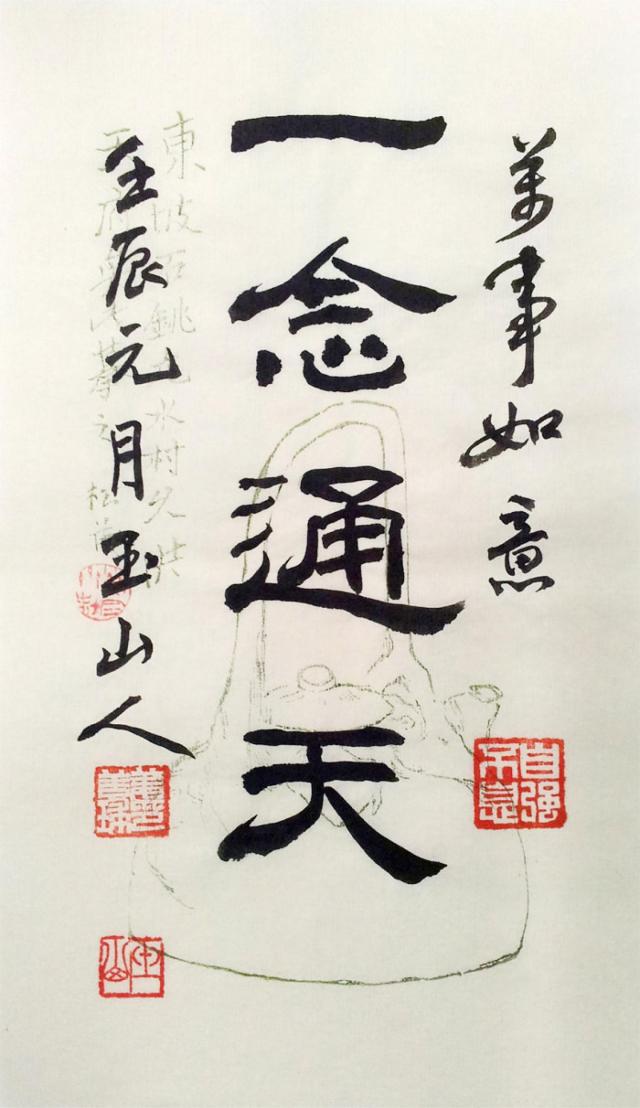 萬事如意
一念通天
壬辰元月玉山人
自强不息
東坡石銚
水村